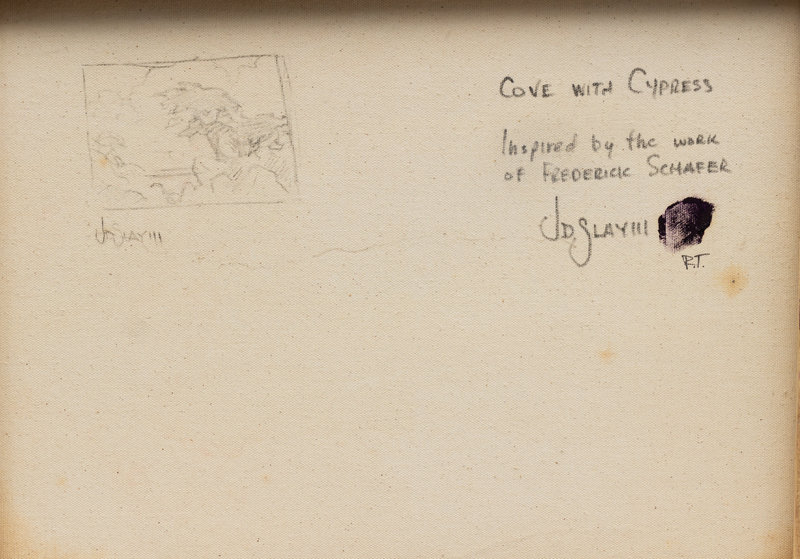 COVE WITH CYPRESS
Inspired by the WORK
OF FREDERICK SCHAFER
JDSLAYIII
R.T.
JDSLAYIII